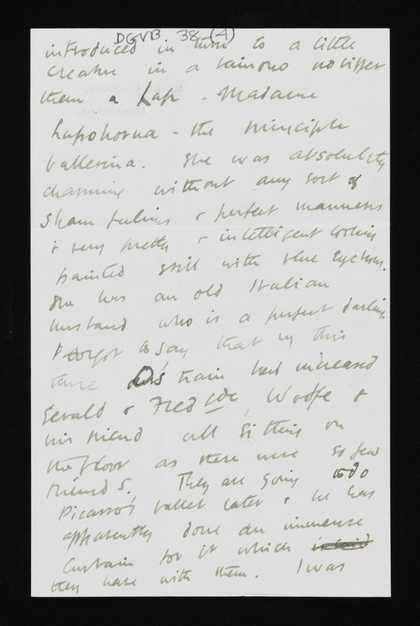 DGVB. 38 (4)
introduced in turn to a little
creature in a kimono no bigger
than a Lap - Madame
Lopohorva - the principle
ballerina. She was absolutely
charming without any sort of
sham feeling & perfect manners
& very pretty & intelligent looking
painted still with blue eyelids.
She has an old Italian
husband who is a perfect darling
I forgot to say that by this
time train had increased
Gerald & Fred &
his friend all sitting on
the floor as there were so few
They are going to do
Picasso's ballet later & he has
apparently done an immense
Curtain for it which
they have with them. I was